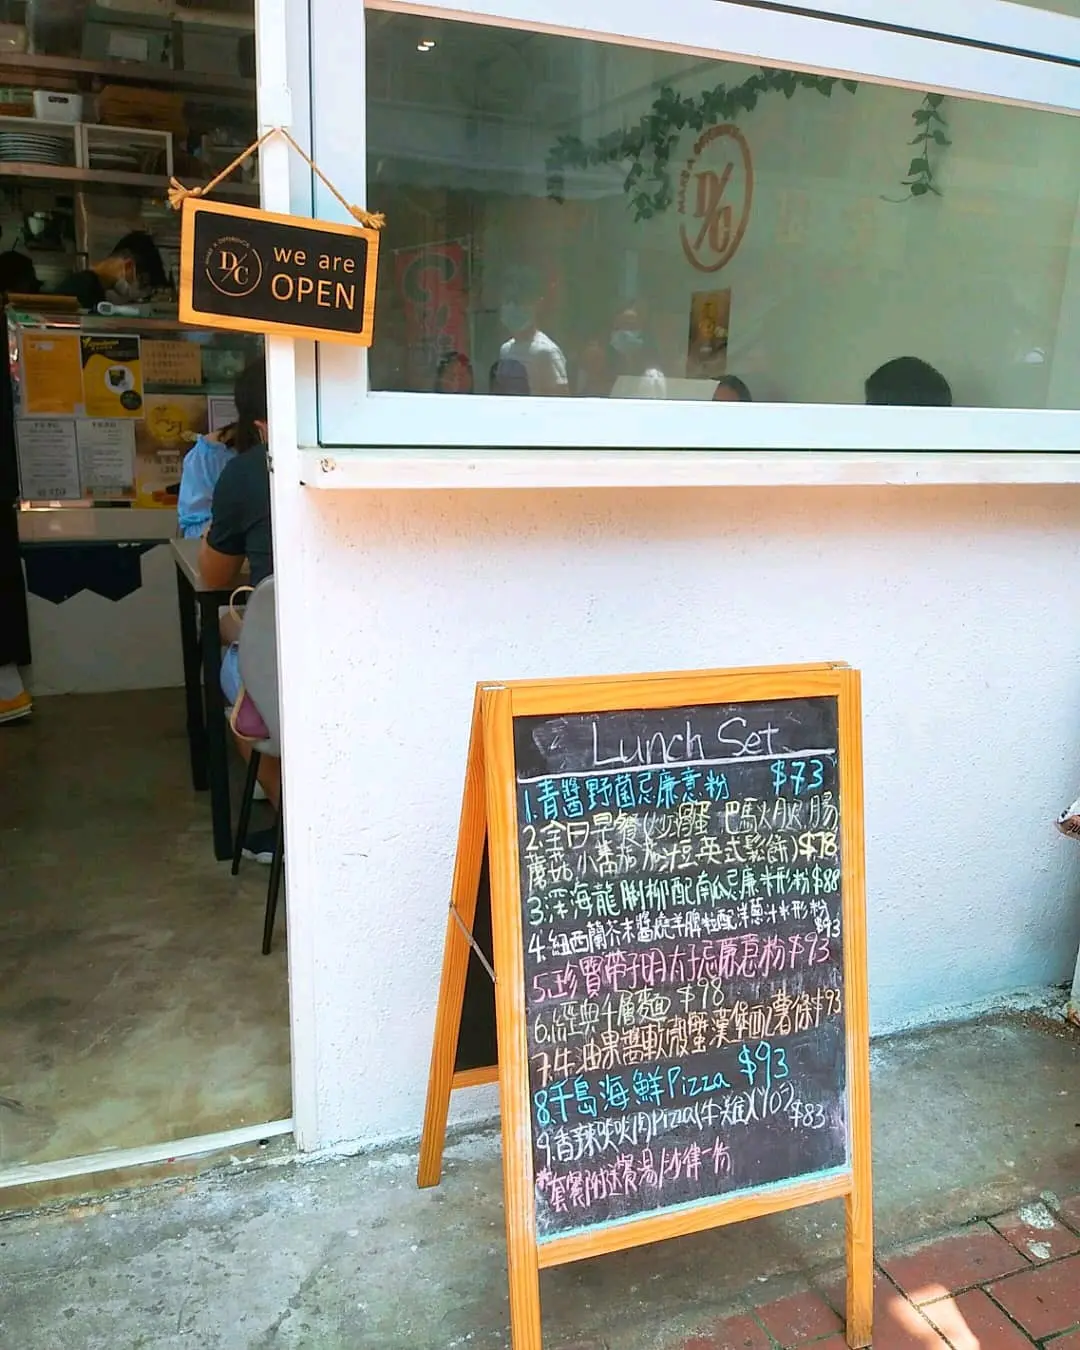 MAKE A DIFFERENCE
D/C
we are
OPEN
D/C
Lunch Set
1.青醬野菌忌廉意粉 $73
2.全日早餐(炒滑蛋 巴馬火腿 腸
蘑菇 小番茄 茄汁豆 英式鬆餅)$78
3.深海龍脷柳配南瓜忌廉米形粉$88
4.紐西蘭芥末醬燒羊脾粒配洋蔥汁米形粉 $93
5.珍寶帶子明太子忌廉意粉$93
6.經典千層麵 $98
7.牛油果醬軟殼蟹漢堡配薯條$93
8.千島海鮮Pizza $93
9.香辣炎炎肉Pizza(牛雞)(10") $83
*套餐附送餐湯/沙律一份